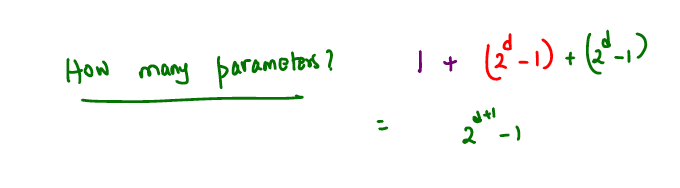 How many parameters? 1 + (2^d - 1) + (2^d - 1)
= 2^{d+1} - 1